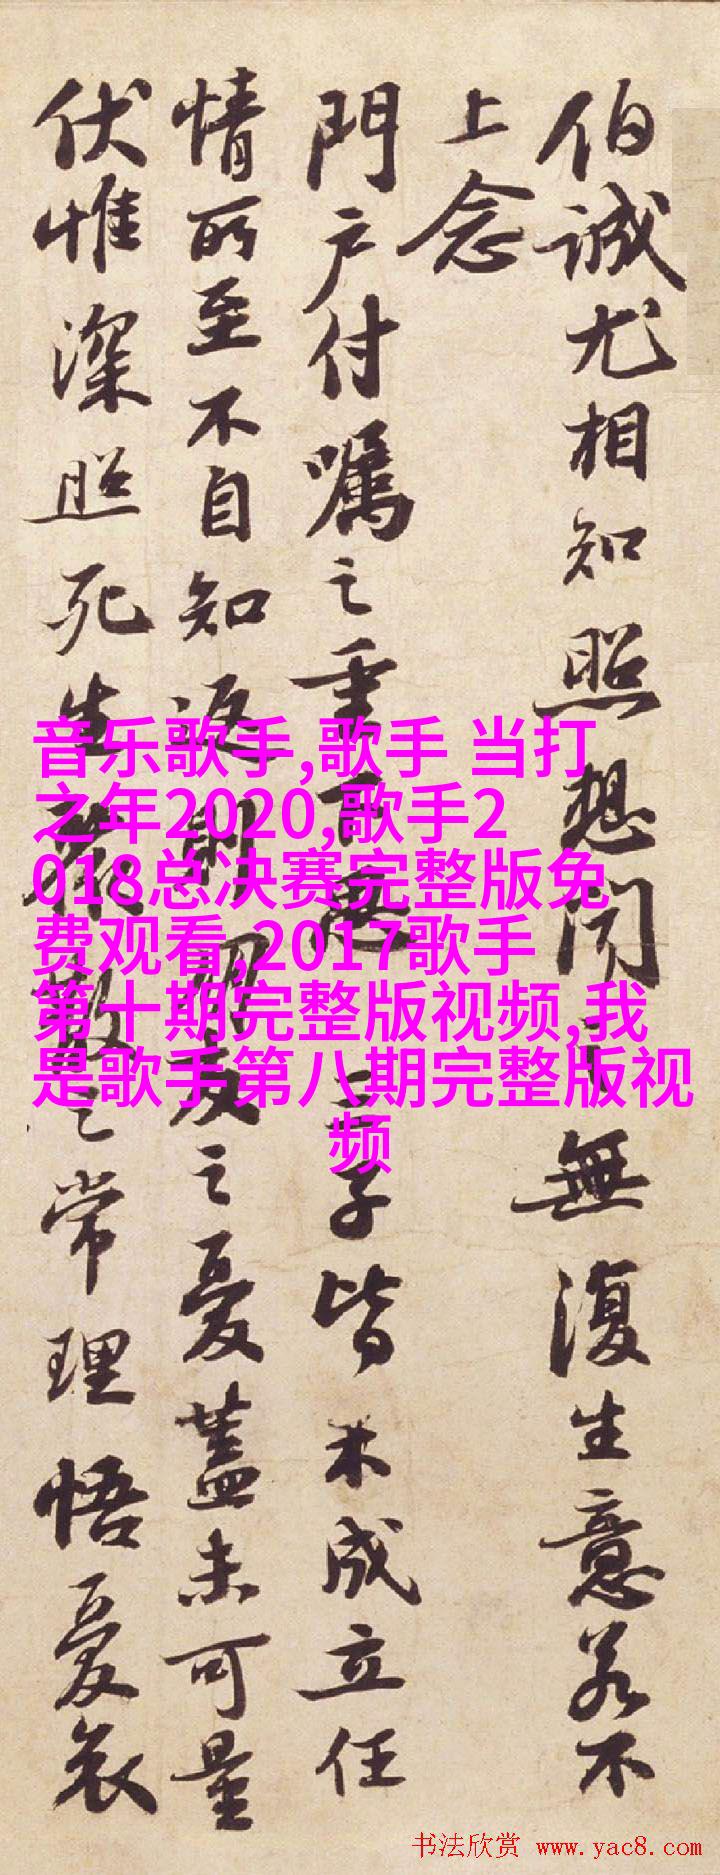 伯誠尤相知照想聞之無復生意若不
上念
門戶付囑之重下思三子皆未成立任
情所至不自知返則朋友之憂蓋未可量
伏惟深照死生聚散之常理悟憂哀
音乐歌手,歌手 当打
之年2020,歌手2
018总决赛完整版免
费观看,2017歌手
第十期完整版视频,我
是歌手第八期完整版视
频
书法欣赏 www.yac8.com